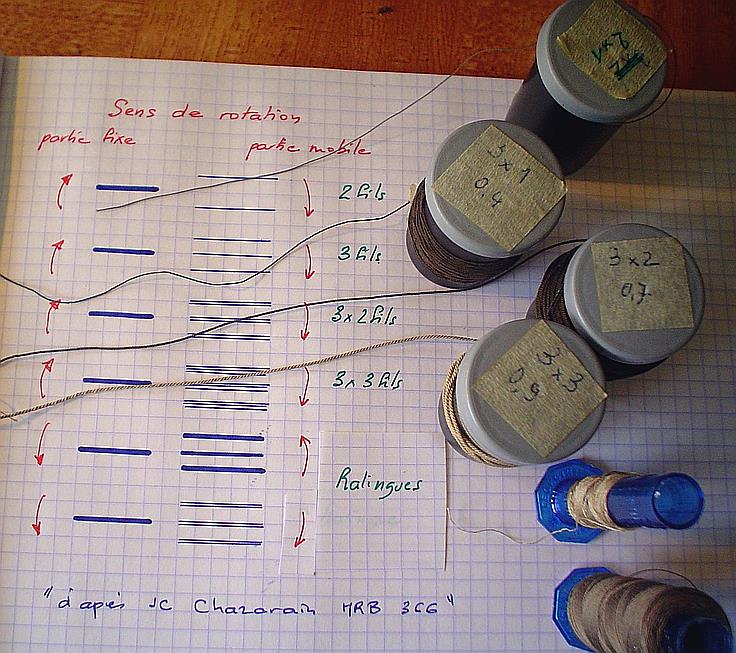 Sens de rotation
partie fixe
partie mobile
2 fils
3 fils
3x2 fils
3x3 fils
Ralingues
"d'après JC Chazarain MRB 366"
3x1
0,4
3x2
0,7
3x3
0,9